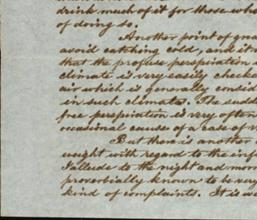 drink much of it for those who
of doing so.
Another point of grea
avoid catching cold, and it
that the profuse perspiration i
climate is very easily checked
air which is generally consid
in such climates. The sudd
free perspiration is very often
occasional cause of a case of
But there is another
weight with regard to the inf
I allude to the night and mor
proverbially known to be very
kind of complaints. It is w